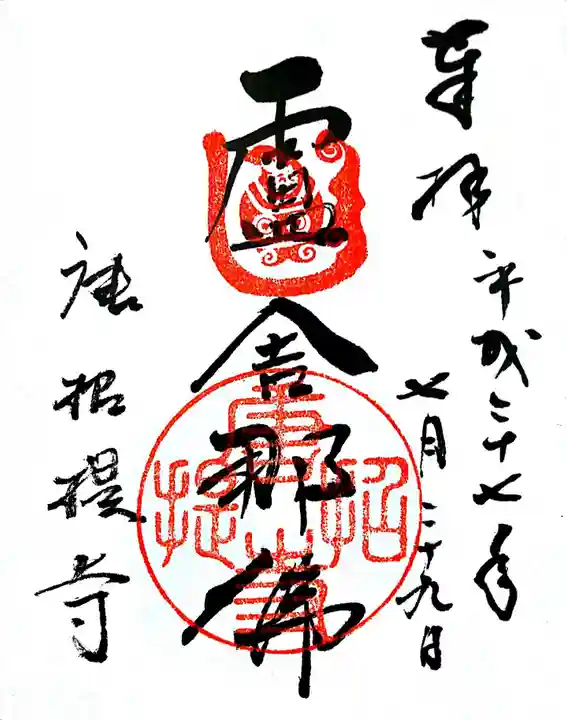 奉拝
平成二十七年
七月二十九日
盧舎那佛
唐招提寺
唐招提寺